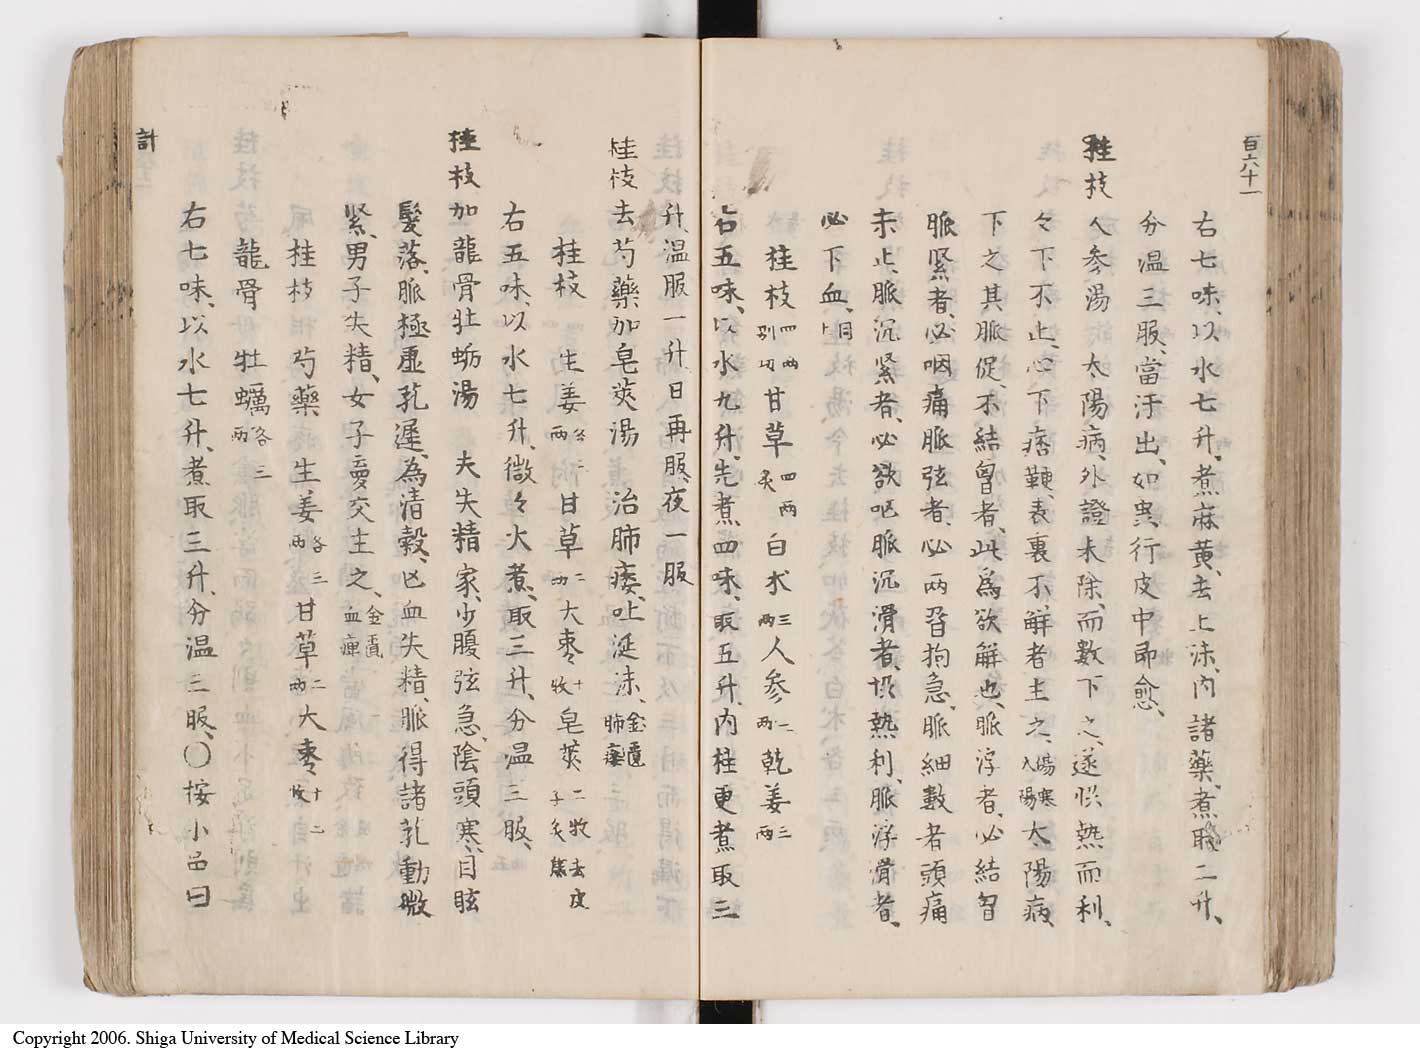 百六十一
右七味、以水七升、煮麻黄、去上沫、内諸藥、煮取二升、
分温三服、當汗出、如虫行皮中即愈、
桂枝人参湯 太陽病、外證未除、而數下之、遂恊熱而利、
々下不止、心下痞鞕、表裏不解者主之、傷寒太陽 太陽病
下之其脈促、不結胷者、此爲欲解也、脈浮者、必結胷
脈緊者、必咽痛脈弦者、必両脅拘急、脈細數者頭痛
未止、脈沉緊者、必欲呕脈沉滑者、恊熱利、脈浮滑者、
必下血、同上
桂枝四両別切甘草四両炙白朮三両人参二両乾姜三両
右五味、以水九升、先煮四味、取五升、内桂更煮取三
升、温服一升日再服、夜一服
桂枝去芍藥加皂莢湯 治肺痿、吐涎沫、金匱肺痿
桂枝 生姜各三両甘草二両大枣十枚皂莢二枚去皮子炙焦
右五味、以水七升、微々火煮、取三升、分温三服、
桂枝加龍骨牡蛎湯 夫失精家、少腹弦急、陰頭寒、目眩
髪落、脈極虚芤遲、為清穀、亡血失精、脈得諸芤動微
緊、男子失精、女子夢交主之、金匱血痺
桂枝 芍藥 生姜各三両甘草二両大枣十二枚
龍骨 牡蠣各三両
右七味、以水七升、煮取三升、分温三服、〇按小品曰
計
Copyright 2006. Shiga University of Medical Science Library